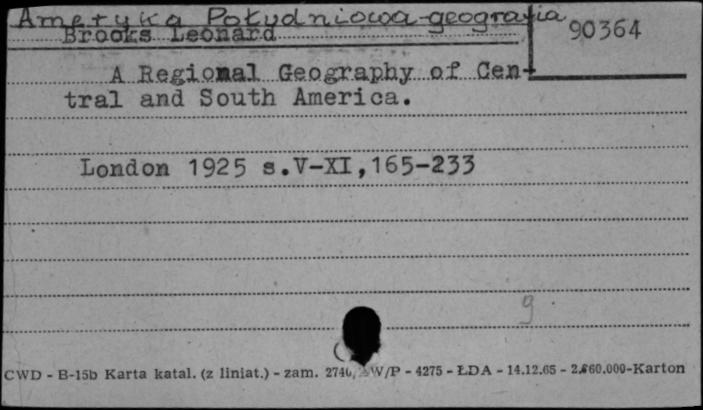 Ameryka Południowa-geografia
90364
Brooks Leonard
A Regional Geography of Cen-
tral and South America.
London 1925 s.V-XI,165-233
9
CWD - B-15b Karta katal. (z liniat.) - zam. 2740, W/P - 4275 - ŁDA - 14.12.65 - 2.860.000-Karton